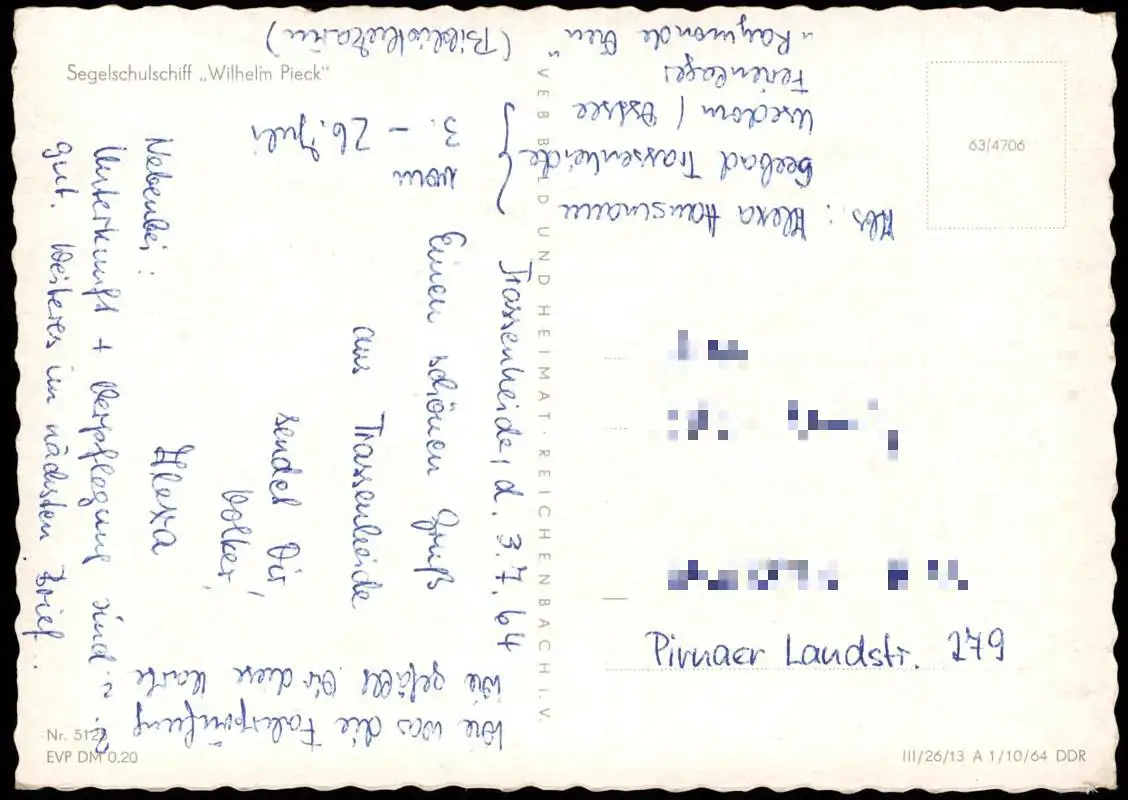 Segelschulschiff „Wilhelm Pieck"
Trassenheide, d. 3.7.64
Einen schönen Gruß
aus Trassenheide
sendet Dir,
Volker,
Alexa
Nebenbei:
Unterkunft + Verpflegung sind
gut. Weiteres im nächsten Brief.
Wie war die Fahrprüfung?
Wie gefällt Dir diese Karte?
Abs.: Alexa Hausmann
Seebad Trassenheide
Usedom / Ostsee
Ferienlager
„Raymonde Dien"
(Bibliothekarin)
vom
3. - 26. Juli
VEB BILD UND HEIMAT · REICHENBACH I. V.
63/4706
Pirnaer Landstr. 279
Nr. 512
EVP DM 0.20
III/26/13 A 1/10/64 DDR